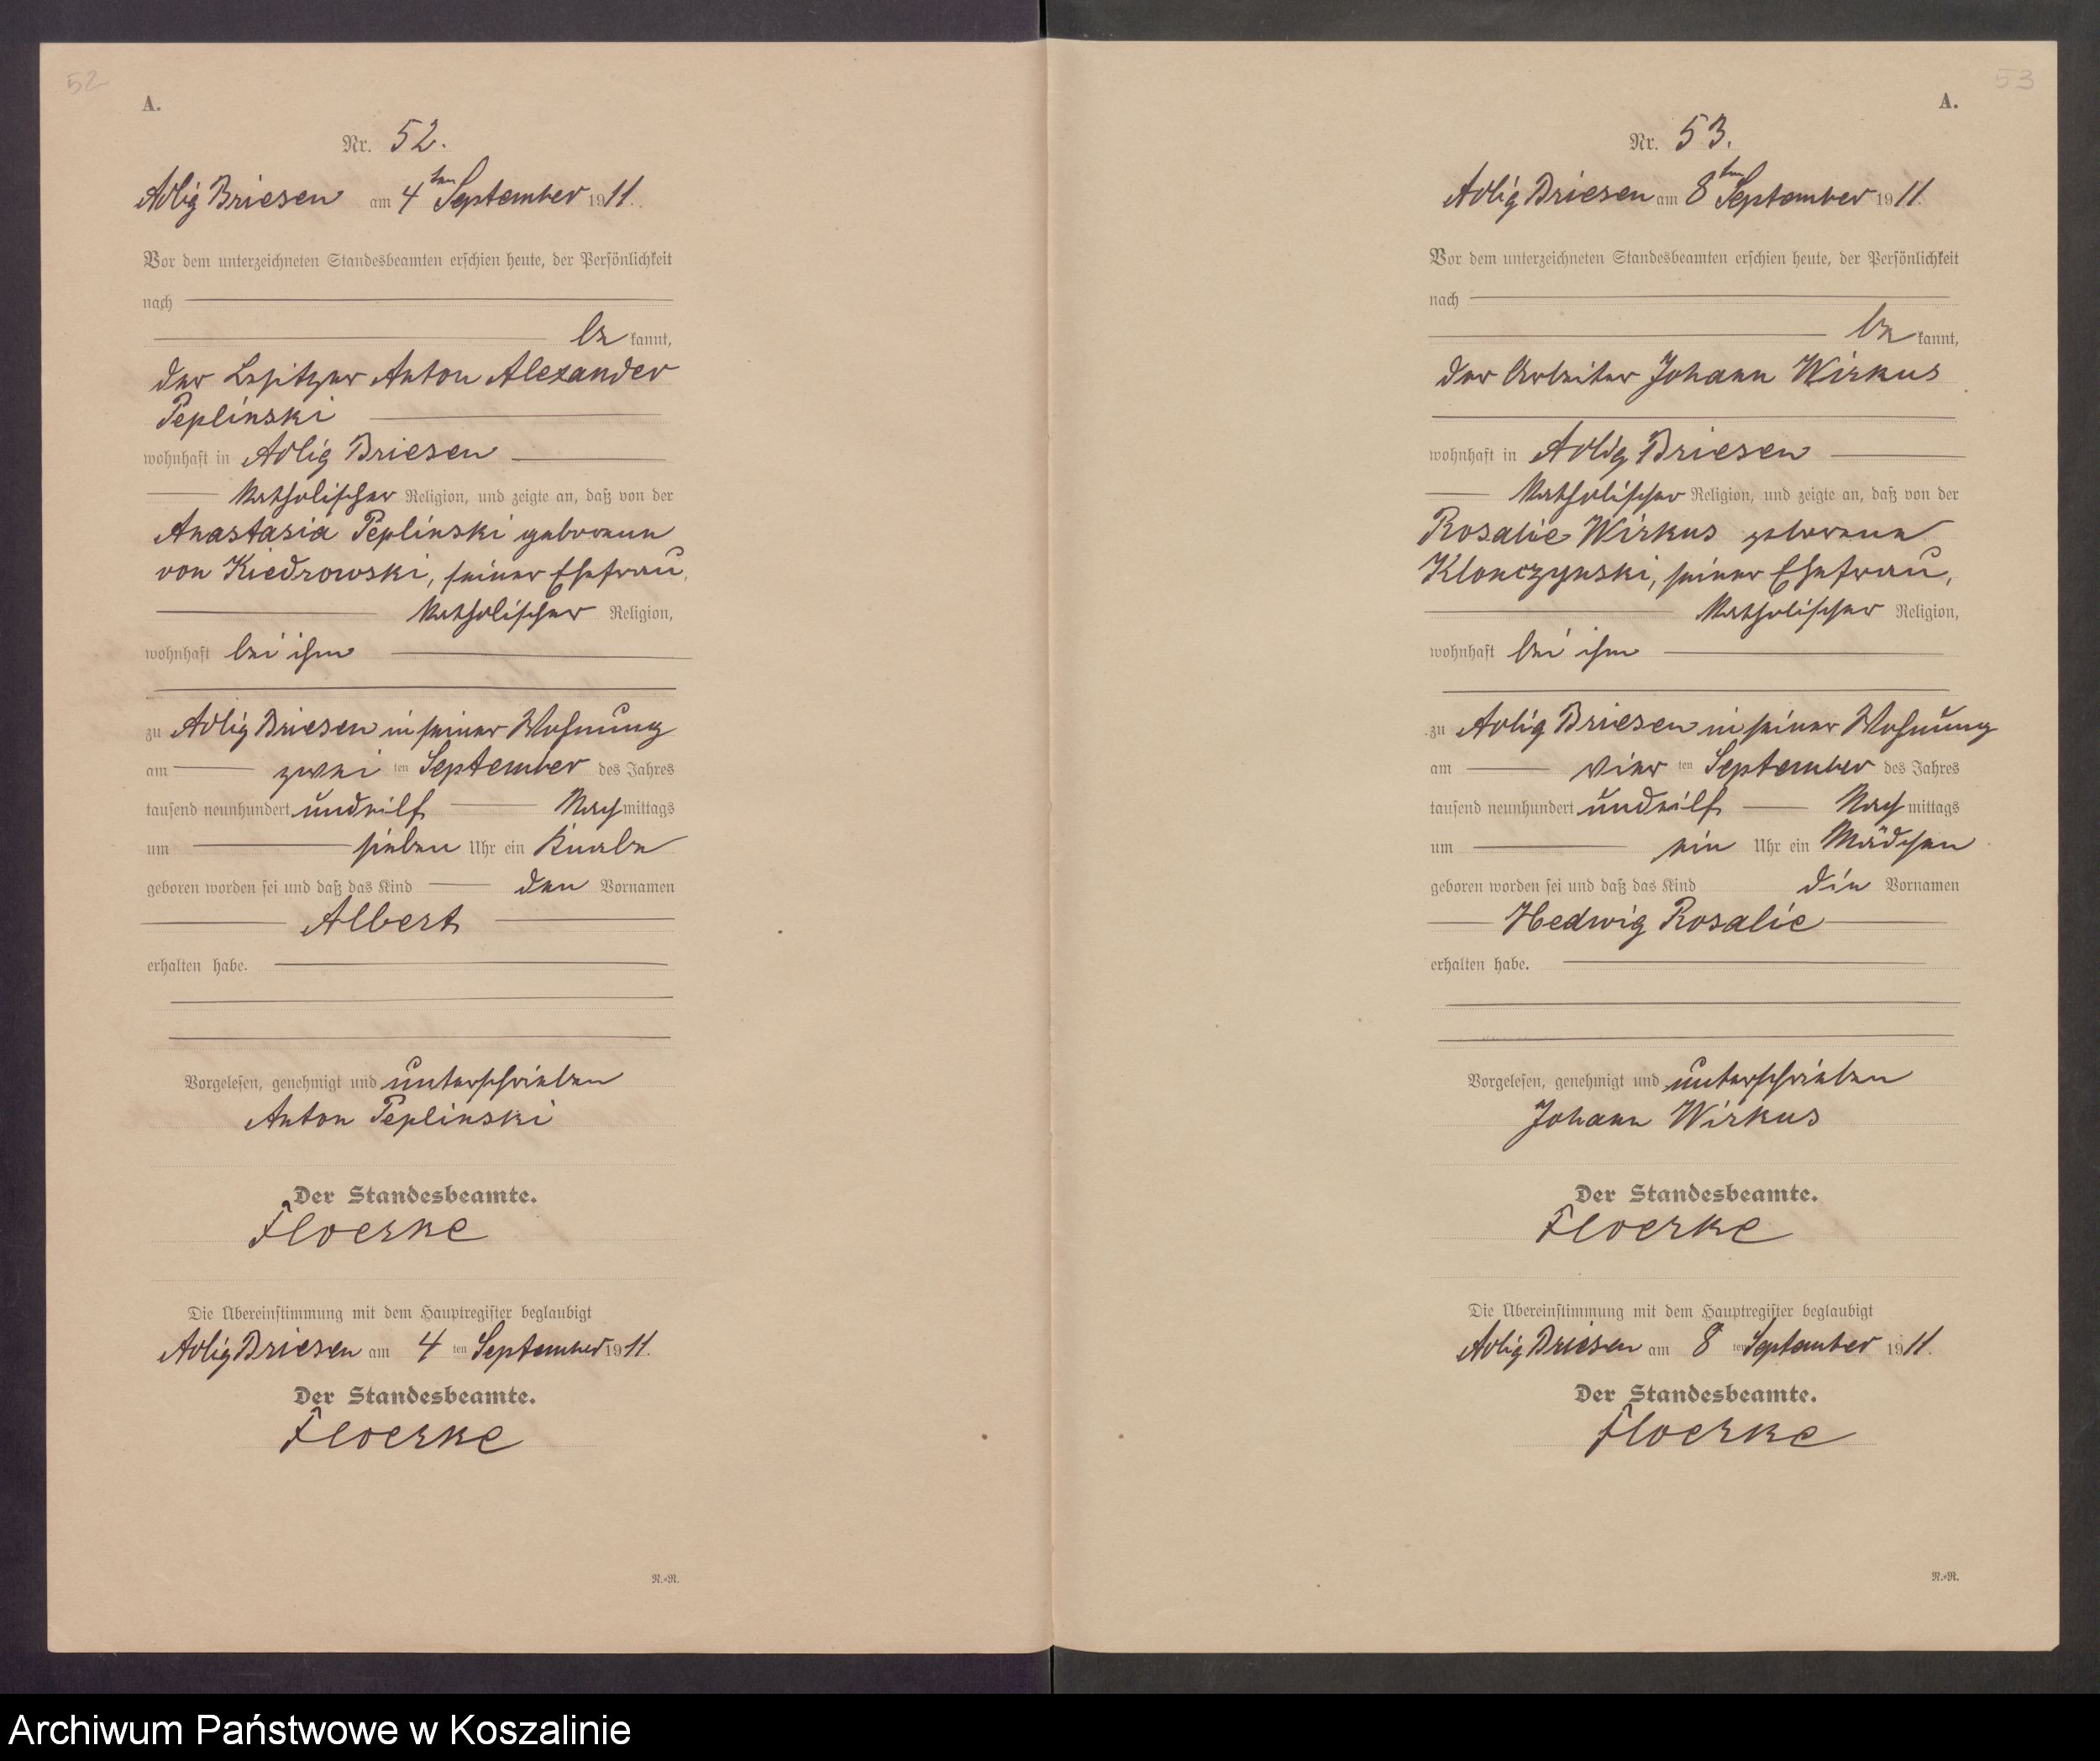 52
A.
Nr. 52.
Adlig Briesen am 4ten September 1911.
Vor dem unterzeichneten Standesbeamten erschien heute, der Persönlichkeit
nach
be kannt,
der Besitzer Anton Alexander
Peplinski
wohnhaft in Adlig Briesen
katholischer Religion, und zeigte an, daß von der
Anastasia Peplinski geborene
von Kiedrowski, seiner Ehefrau,
katholischer Religion,
wohnhaft bei ihm
zu Adlig Briesen in seiner Wohnung
am zwei ten September des Jahres
tausend neunhundert undeilf Nachmittags
um sieben Uhr ein Knabe
geboren worden sei und daß das Kind den Vornamen
Albert
erhalten habe.
Vorgelesen, genehmigt und unterschrieben
Anton Peplinski
Der Standesbeamte.
Floerke
Die Übereinstimmung mit dem Hauptregister beglaubigt
Adlig Briesen am 4 ten September 1911.
Der Standesbeamte.
Floerke
R.=R.
53
A.
Nr. 53.
Adlig Briesen am 8ten September 1911.
Vor dem unterzeichneten Standesbeamten erschien heute, der Persönlichkeit
nach
be kannt,
der Arbeiter Johann Wirkus
wohnhaft in Adlig Briesen
katholischer Religion, und zeigte an, daß von der
Rosalie Wirkus geborene
Klonczynski, seiner Ehefrau,
katholischer Religion,
wohnhaft bei ihm
zu Adlig Briesen in seiner Wohnung
am vier ten September des Jahres
tausend neunhundert undeilf Nachmittags
um ein Uhr ein Mädchen
geboren worden sei und daß das Kind die Vornamen
Hedwig Rosalie
erhalten habe.
Vorgelesen, genehmigt und unterschrieben
Johann Wirkus
Der Standesbeamte.
Floerke
Die Übereinstimmung mit dem Hauptregister beglaubigt
Adlig Briesen am 8 ten September 1911.
Der Standesbeamte.
Floerke
R.=R.
Archiwum Państwowe w Koszalinie